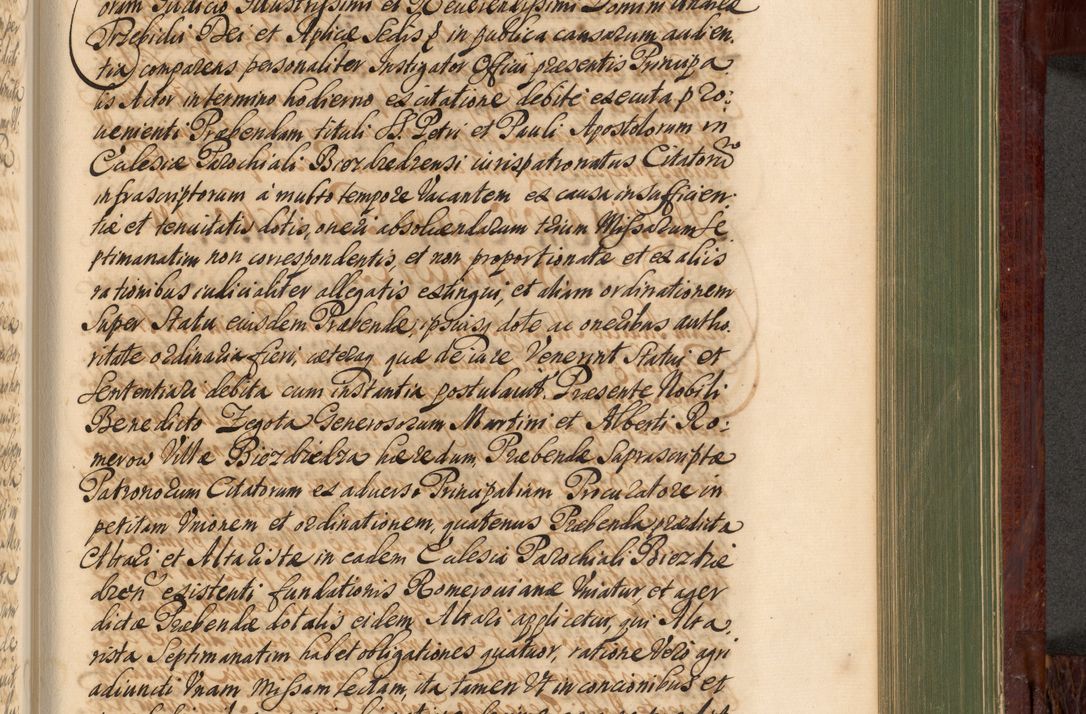 oram Iudicio Illustrissimi et Reverendissimi Domini
Trzebicki Dei et Aplicæ Sedis g in publica causarum audien.
tia) comparens personaliter Instigator Officii præsentis Principa
lis Actor in termino hodierno ex citatione debite executa pro:
uenienti Præbendam tituli SS. Petri et Pauli Apostolorum in
Ecclesia Parochiali Biezdziedzensi iurispatronatus Citatorū
infrascriptorum à multo tempore Vacantem ex causa insufficien:
tiæ et tenuitatis dotis, oneri absoluendarum trium Missarum se
ptimanatim non correspondentis et non proportionatæ et ex aliis
rationibus iudicialiter allegatis extingui, et aliam ordinationem
super Statu eiusdem Præbendæ, ipsiusq dote ac oneribus autho
ritate ordinaria fieri, cæteraq quæ de iure Venerint Statui et
sententiari debita cum instantia postulauit. Præsente Nobili
Benedicto Zegota Generosorum Martini et Alberti Ro:
merow Villæ Biezdziedza hæredum, Præbendæ Suprascriptæ
Patronorum Citatorum ex aduerso Principalium Procuratore in
petitam Vnionem et ordinationem, quatenus Præbenda prædicta
Altari et Altaristæ in eadem Ecclesia Parochiali Biezdzie
dzen existenti fundationis Romerouianæ Vniatur, et ager
dictæ Præbendæ dotalis eidem Altari applicetur, qui Alta
rista Septimanatim habet obligationes quatuor, ratione Vero agri
adiuncti Vnam Missam lectam, ita tamen Vt in concionibus et